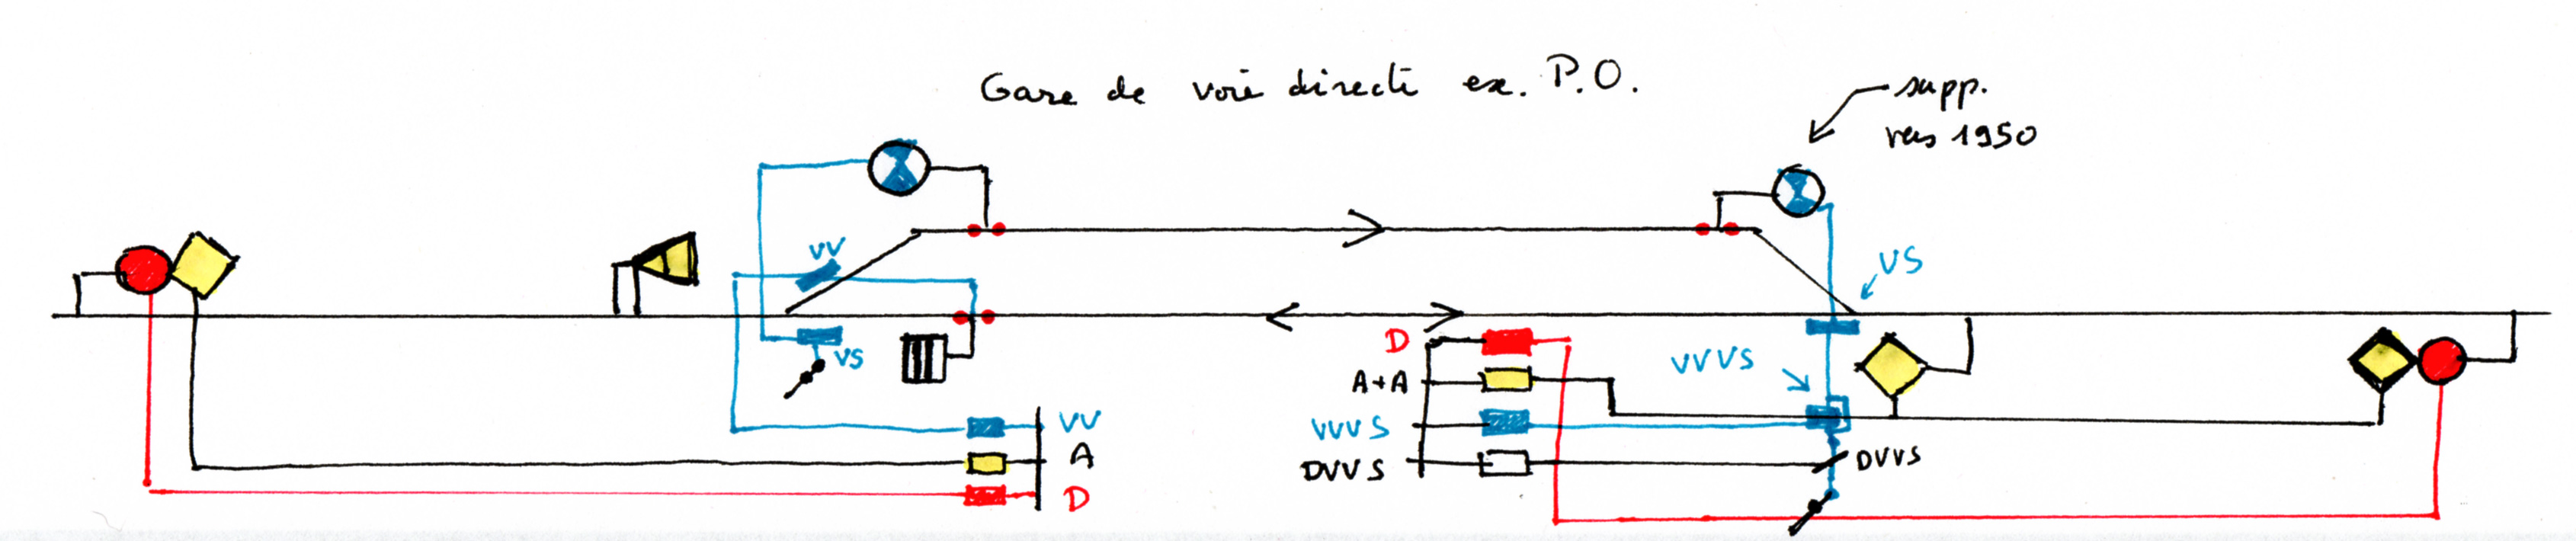 Gare de voie directe ex. P.O.
supp.
vers 1950
VV
VS
VV
A
D
D
A+A
VVVS
DVVS
VS
VVVS
DVVS